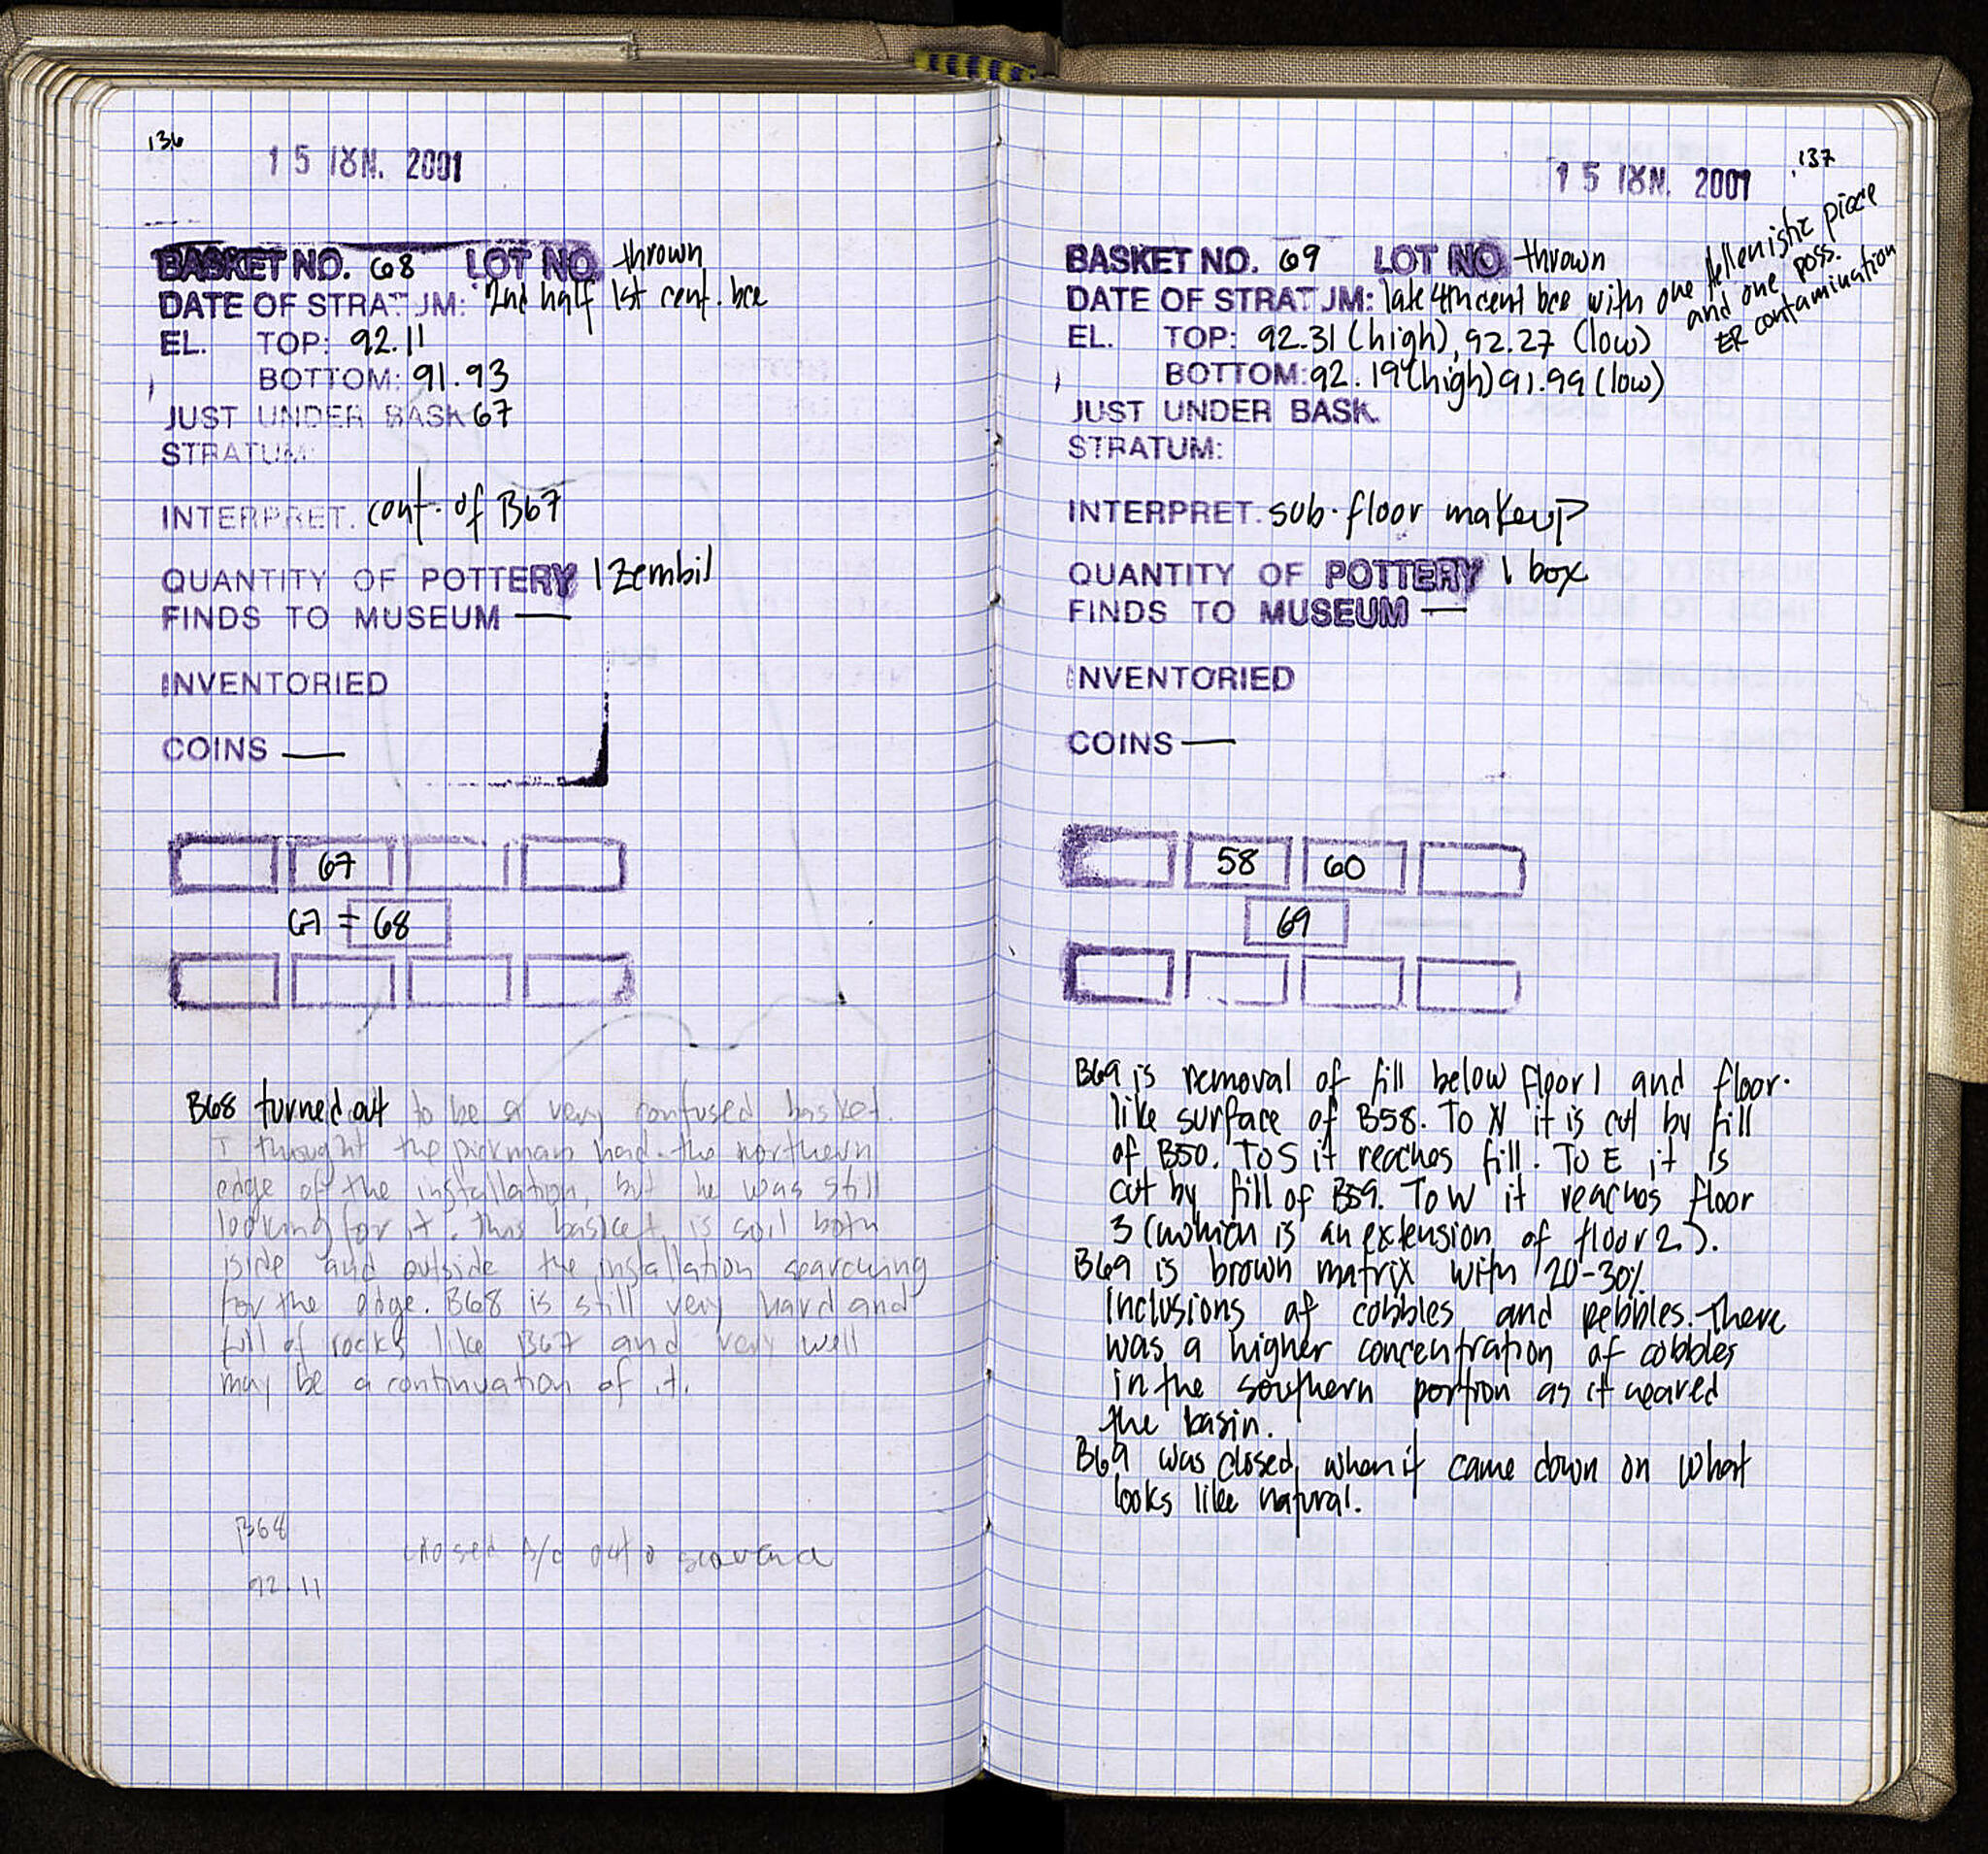 136
15 ΙΟΥΝ. 2001
BASKET NO. 68 LOT NO thrown
DATE OF STRATUM: 2nd half 1st cent. bce
EL. TOP: 92.11
BOTTOM: 91.93
JUST UNDER BASK 67
STRATUM:
INTERPRET. cont. of B67
QUANTITY OF POTTERY 1 Zembil
FINDS TO MUSEUM —
INVENTORIED
COINS —
67
67 = 68
B68 turned out to be a very confused basket.
I thought the pickman had the northern
edge of the installation, but he was still
looking for it. This basket is soil both
iside and outside the installation searching
for the edge. B68 is still very hard and
full of rocks like B67 and very well
may be a continuation of it.
B68
closed b/c
92.11
137
15 ΙΟΥΝ. 2001
BASKET NO. 69 LOT NO thrown
DATE OF STRATUM: late 4th cent bce with one Hellenistic piece
and one poss.
ER contamination
EL. TOP: 92.31 (high), 92.27 (low)
BOTTOM: 92.19 (high) 91.99 (low)
JUST UNDER BASK.
STRATUM:
INTERPRET. sub-floor makeup
QUANTITY OF POTTERY 1 box
FINDS TO MUSEUM —
INVENTORIED
COINS —
58 60
69
B69 is removal of fill below floor 1 and floor-
like surface of B58. To N it is cut by fill
of B50. To S it reaches fill. To E it is
cut by fill of B59. To W it reaches floor
3 (which is an extension of floor 2).
B69 is brown matrix with 20-30%
inclusions of cobbles and pebbles. There
was a higher concentration of cobbles
in the southern portion as it neared
the basin.
B69 was closed when it came down on what
looks like natural.